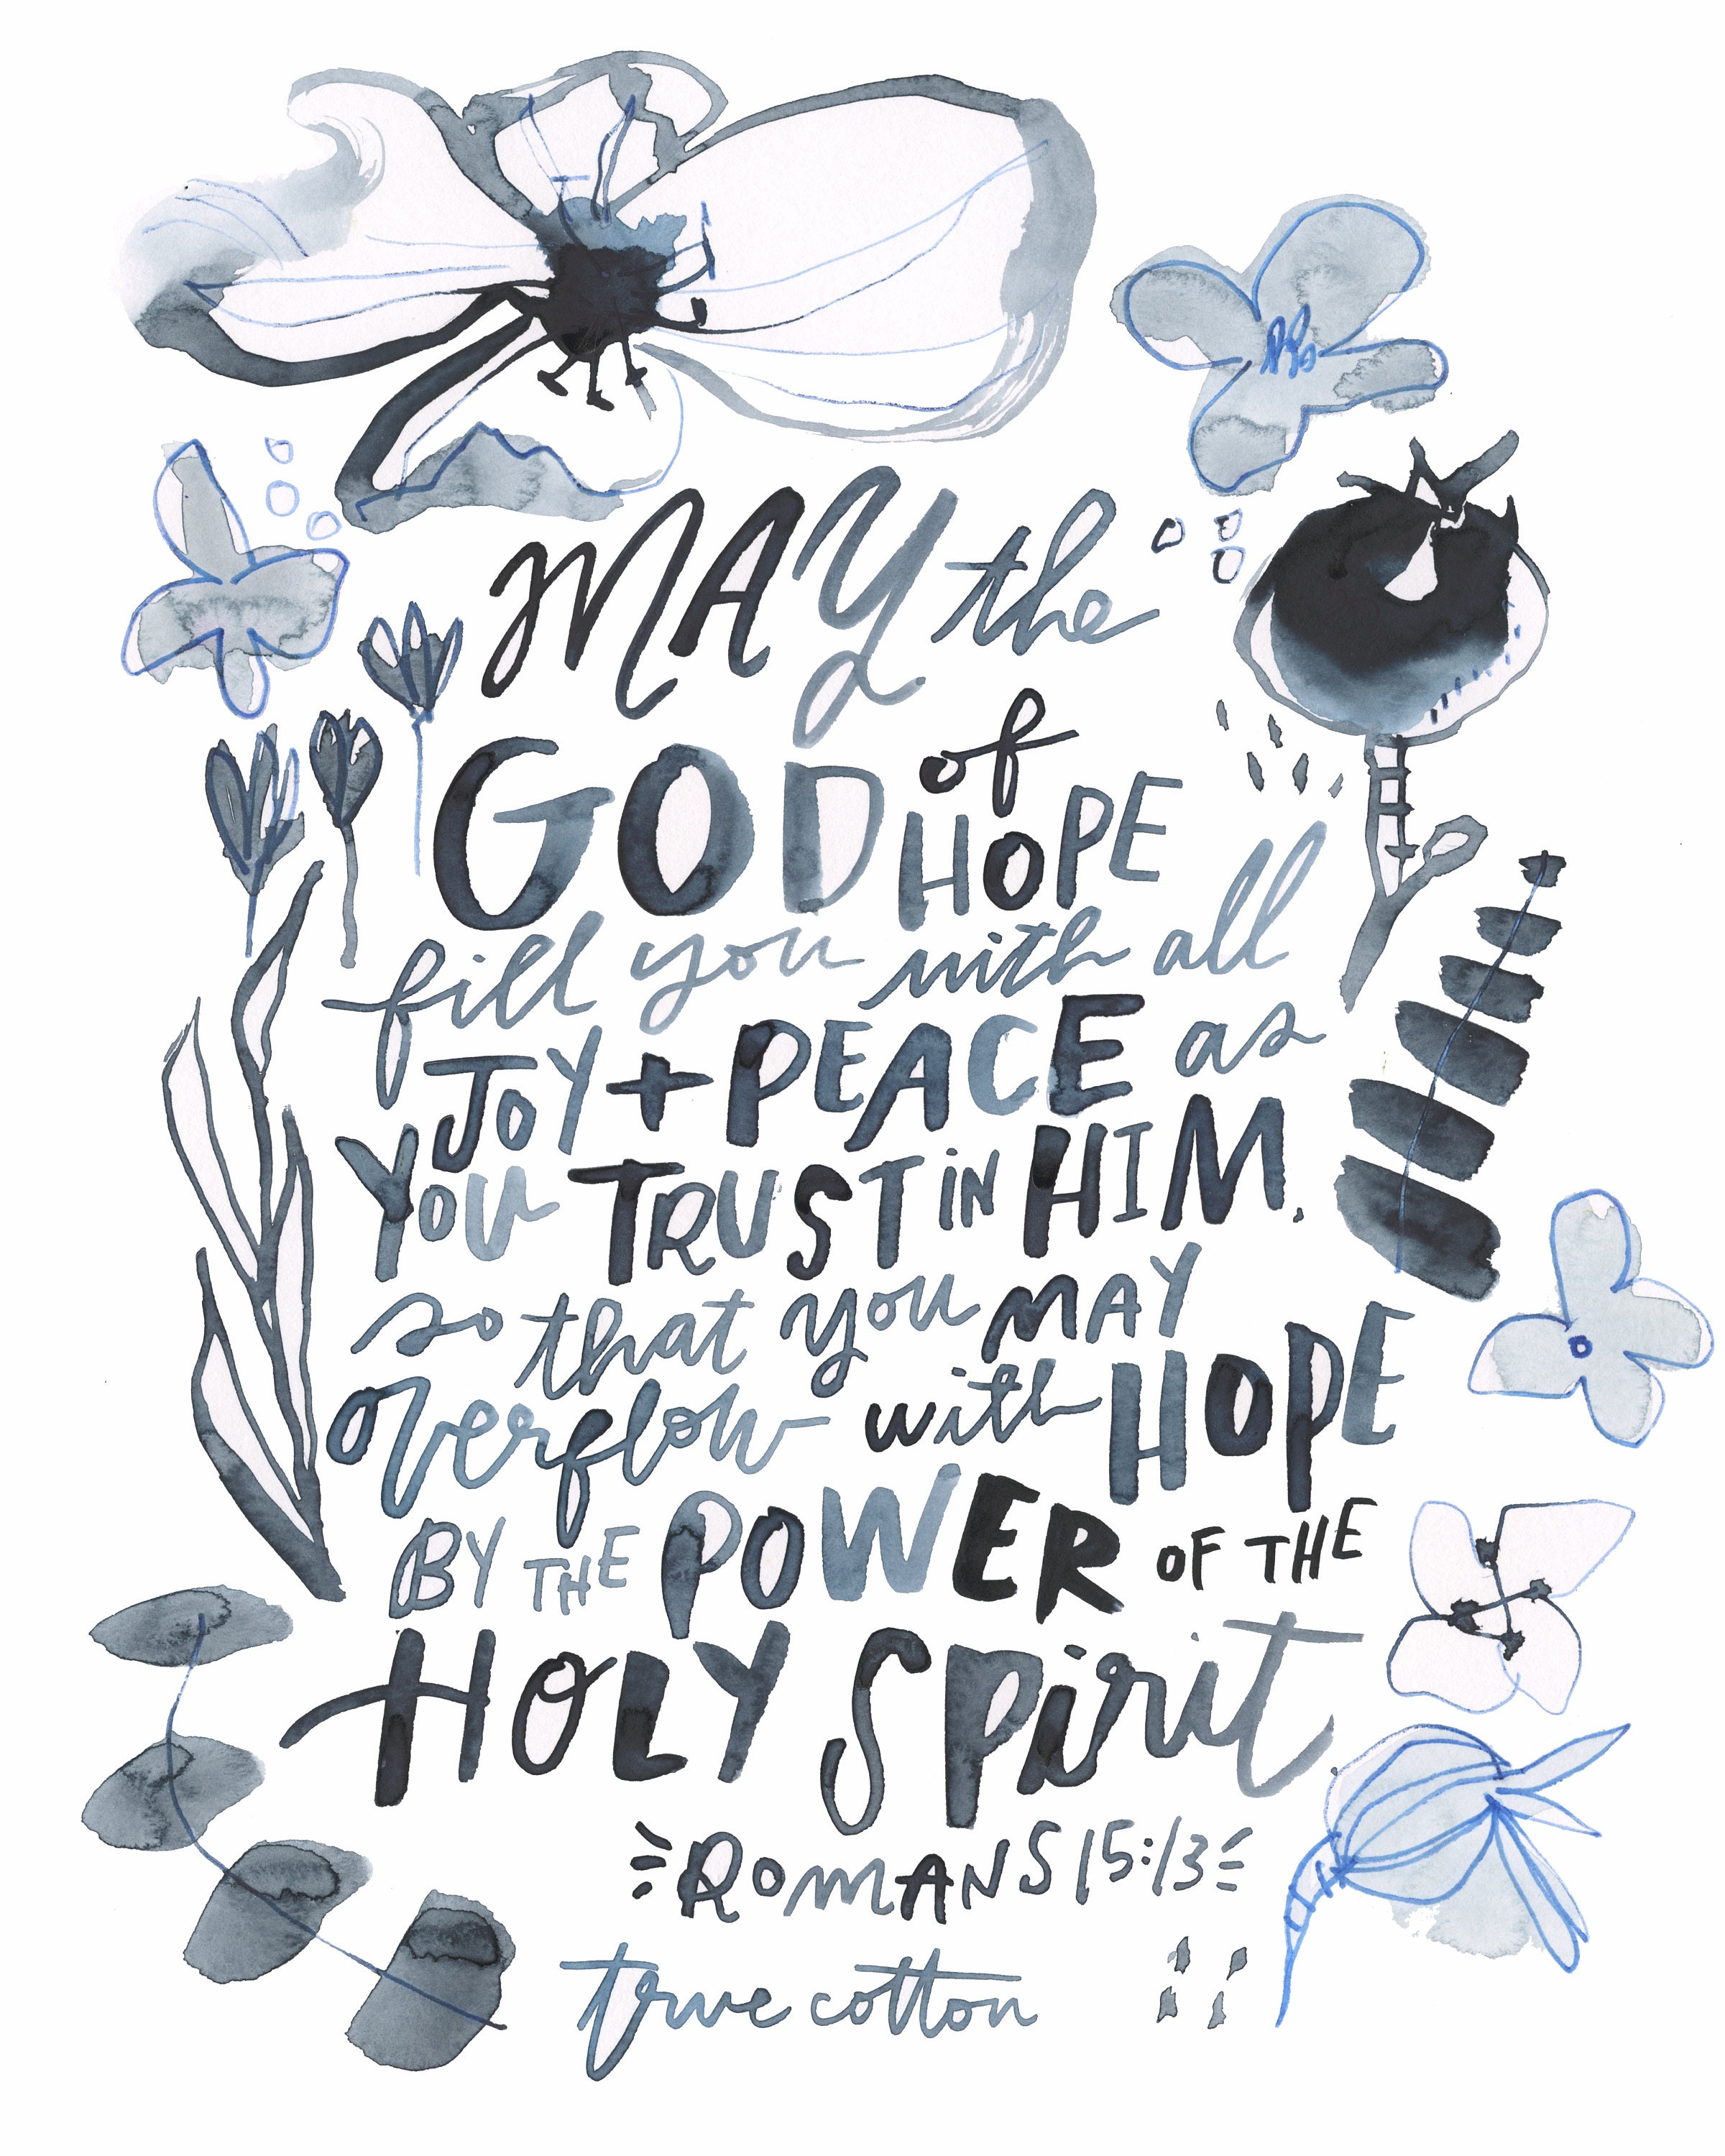 MAY the
GOD of HOPE
fill you with all
JOY + PEACE as
YOU TRUST IN HIM.
so that you MAY
overflow with HOPE
BY THE POWER OF THE
HOLY SPIRIT
ROMANS 15:13
true cotton